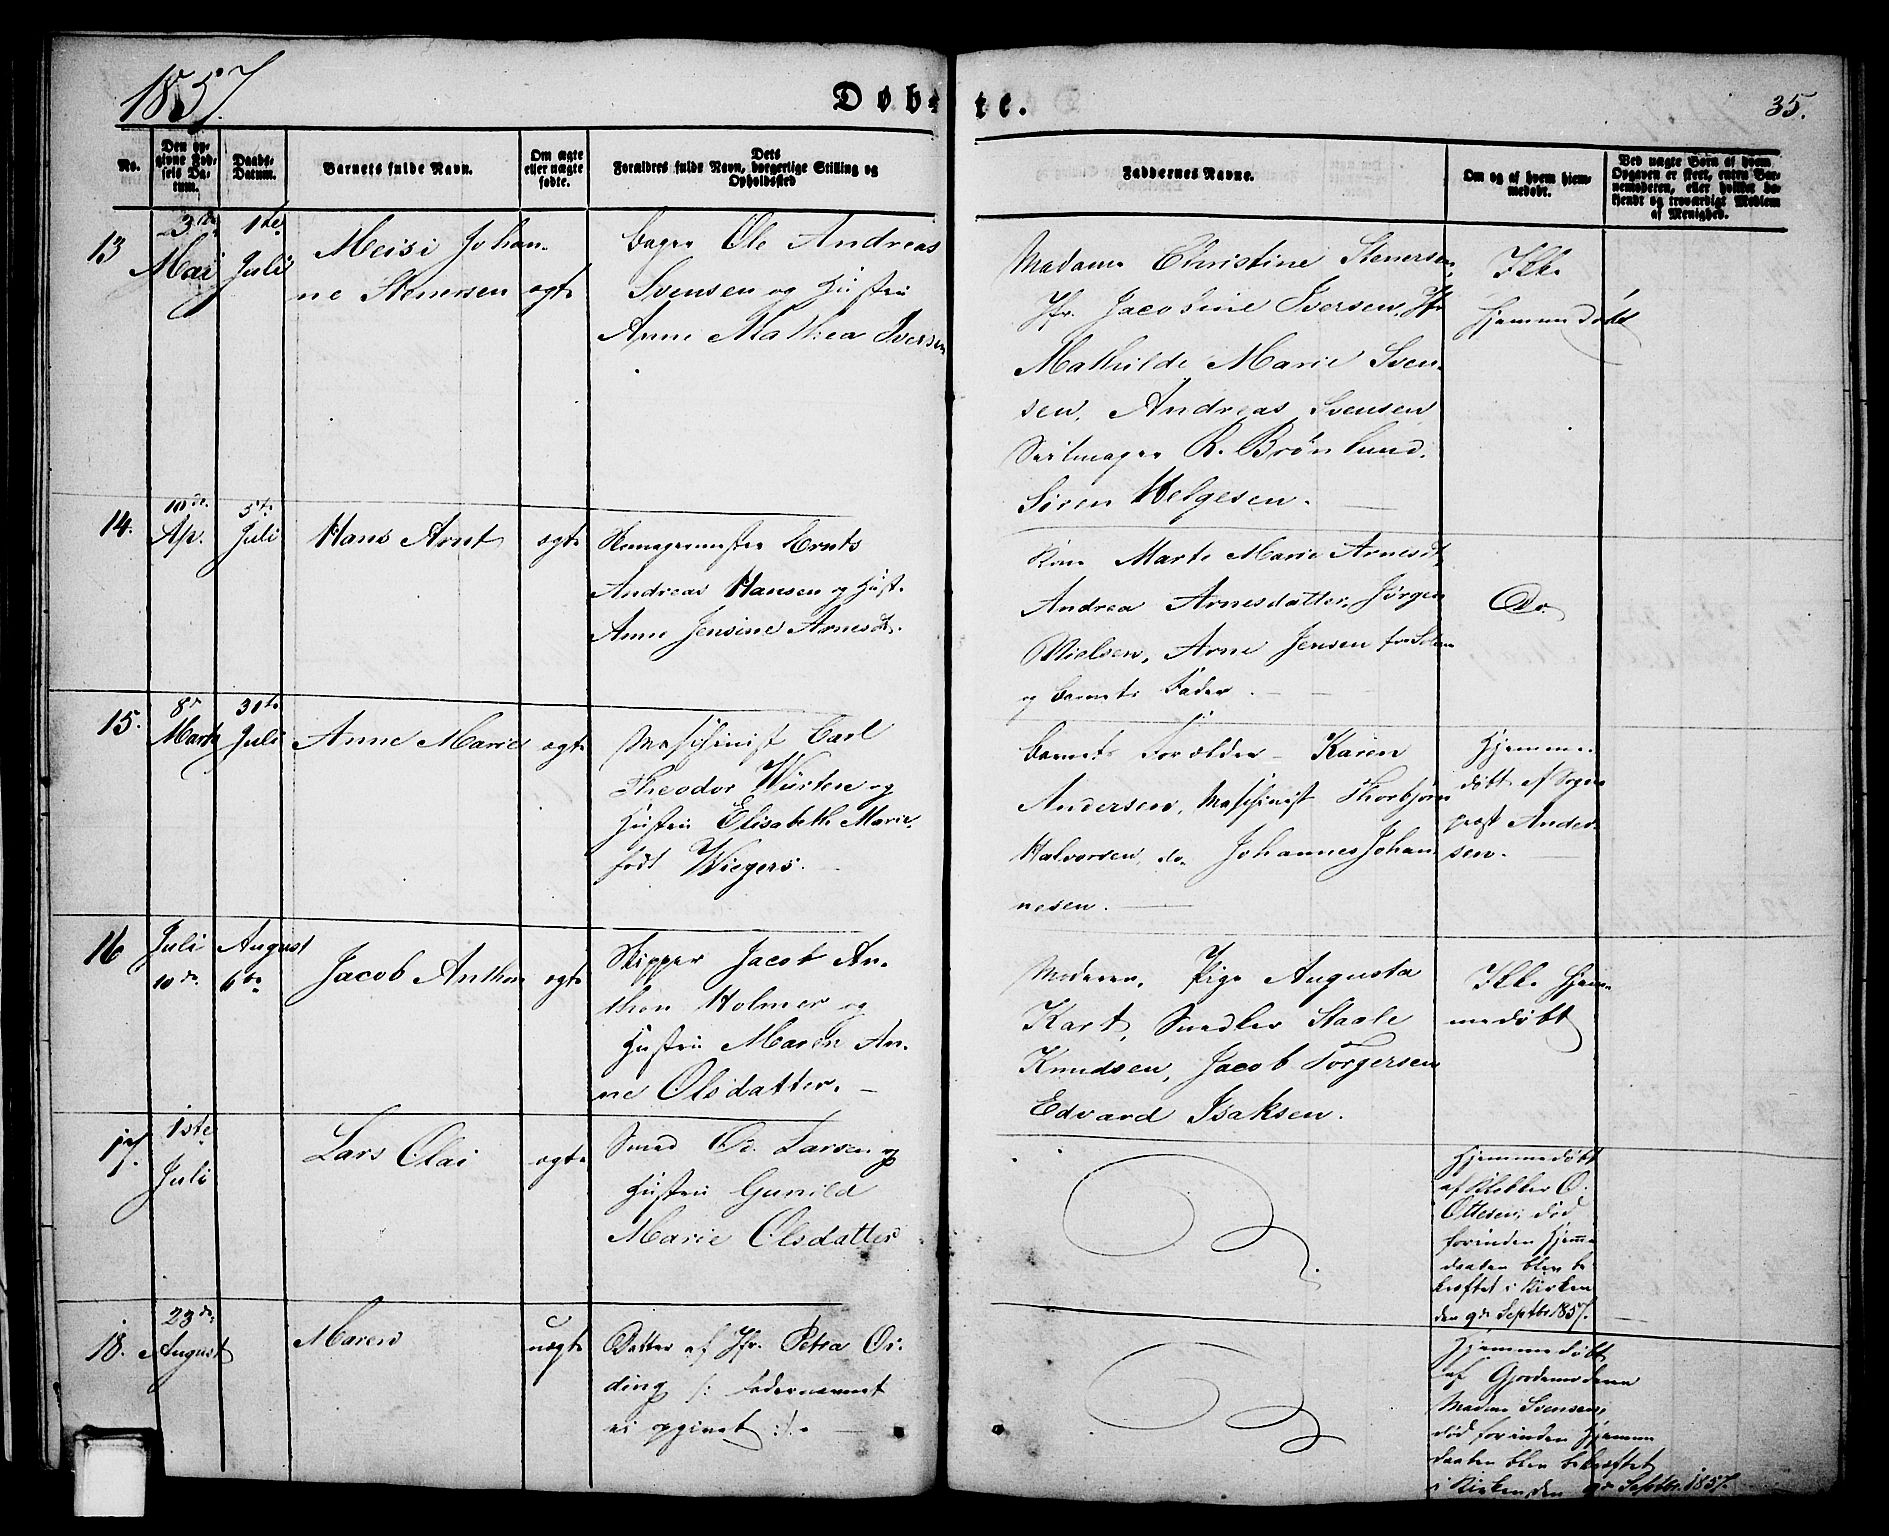 1857.
Døbte.
35.
No.
Den opgivne Fødsels Datum.
Daabs-Datum.
Barnets fulde Navn.
Om ægte eller uægte født.
Dets Forældres fulde Navn, borgerlige Stilling og Opholdssted
Faddernes Navne.
Om og af hvem hjemmedøbt.
Ved uægte Børn af hvem Opgaven er skeet, enten Barnemoderen, eller hvilket bekjendt og troværdigt Medlem af Menighed.
13
3die Mai
1ste Juli
Meisi Johan-
ne Stenersen
ægte
Bager Ole Andreas
Svensen og Hustru
Anne Mathea Iversen
Madame Christine Stenersen,
Jfr. Jacobine Iversen, Jfr
Mathilde Marie Sven-
sen, Andreas Svensen
Seilmager R. Brönlund,
Sören Helgesen.
Ikke
Hjemmedöbt
14.
10de Ap.
5te Juli
Hans Arnt
ægte
Andreas Hansen og Hust.
Anne Jensine Arnesdt.
Kone Marte Marie Arnesdt,
Andrea Arnesdatter, Jörgen
Nielsen, Arne Jensen
og Barnets Fader.
Do.
15.
8de Marts
31te Juli
Anne Marie
ægte
Maschinist Carl
Theodor Würten og
Hustru Elisabeth Marie,
född Wiegers.
Barnets Forældre - Karen
Andersen, Maschinist Thorbjörn
Halvorsen, do. Johannes Johan
nesen.
Hjemme-
döbt af Sogne
præst Ander-
sen.
16
Juli 10de
August 6te
Jacob Anthon
ægte
Skipper Jacob An-
thon Holmer og
Hustru Maren An-
ne Olsdatter.
Moderen, Pige Augusta
Kart, Snedker Staale
Knudsen, Jacob Torgersen
Edvard Isaksen.
Ikke Hjem-
medöbt
17.
1ste Juli
Lars Olai
ægte
Smed O. Larsen og
Hustru Gunild
Marie Olsdatter
Hjemmedöbt
af Klokker O.
Ottesen, död
forinden Hjemme
daaben blev be
kræftet i Kirken
den 9de Septbr 1857.
18.
23de August
Maren
uægte
Datter af Jfr. Petra Or-
ding /: Fadernavnet
ei opgivet :/.
Hjemmedöbt
af Gjordemoderen
Madme Svensen,
död forinden Hjemme
daaben blev bekræftet
i Kirken den 9de Septbr. 1857.